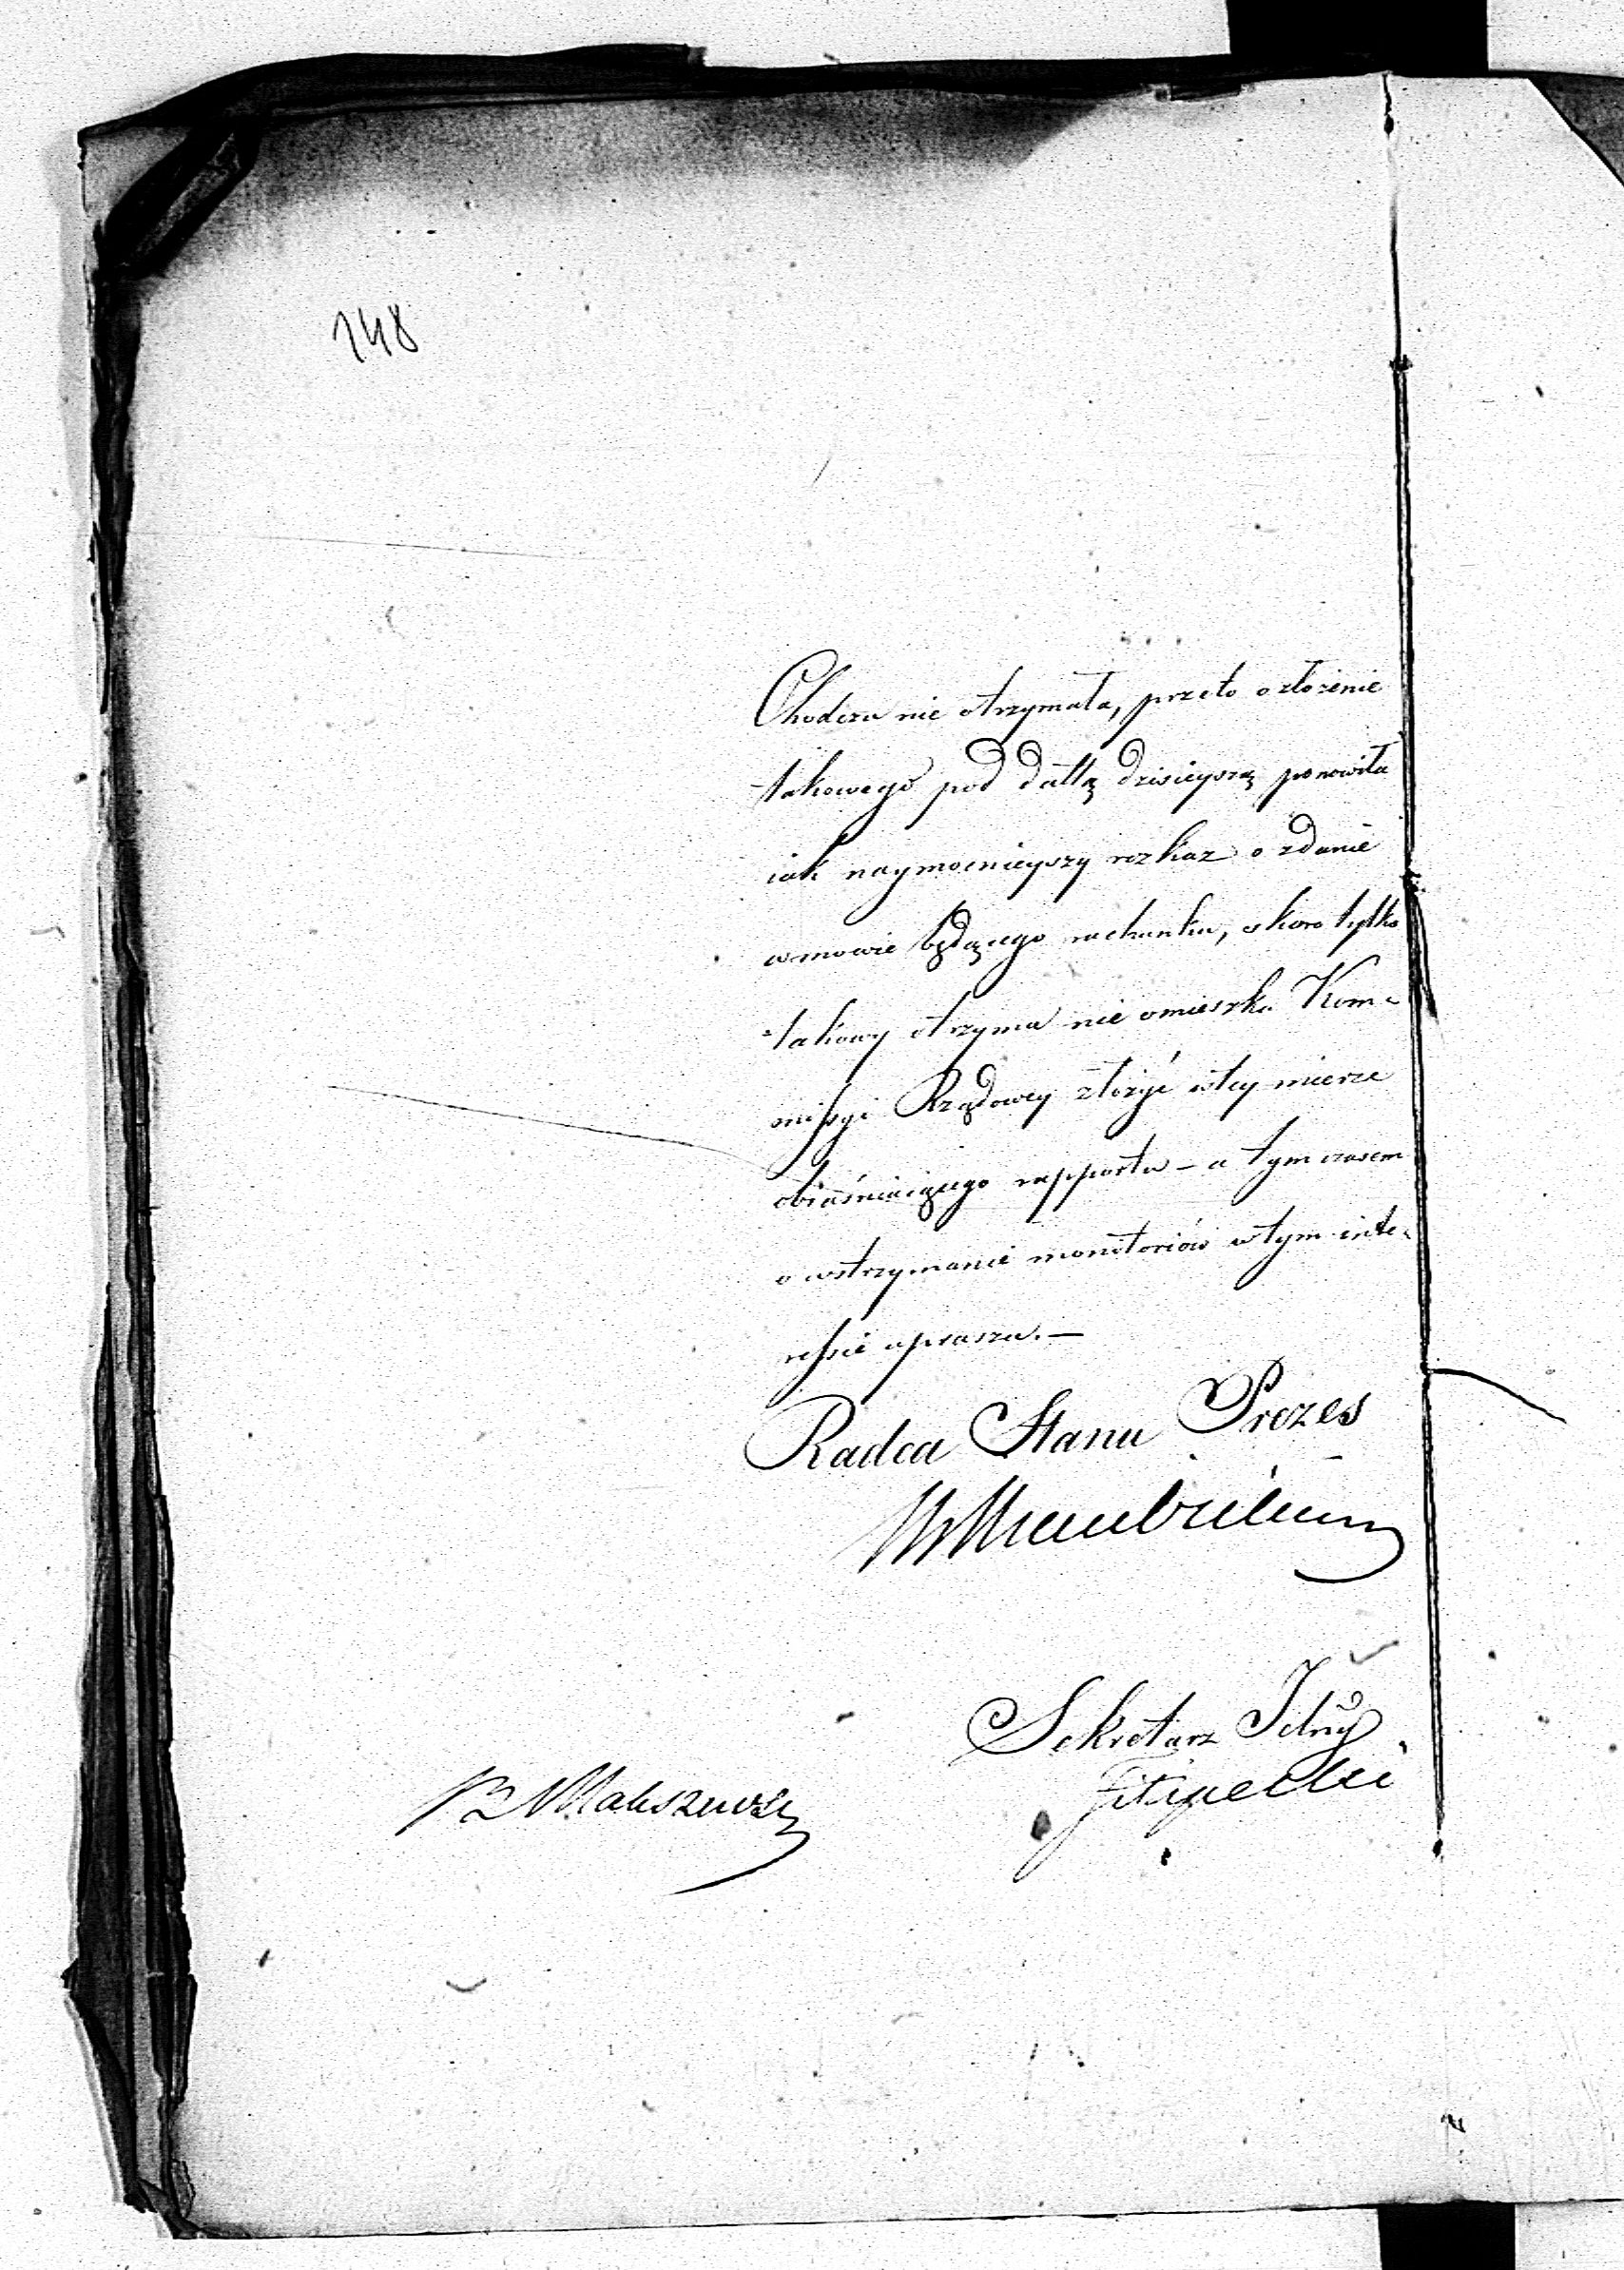 148
Chodcza nie otrzymała, przeto o złożenie
takowego pod dattą dzisieyszą ponowiła
iak naymocnieyszy rozkaz o zdanie
w mowie będącego rachunku, skoro tylko
takowy otrzyma nie omieszka Kom-
missyi Rządowey złożyć w tey mierze
obiaśniaiącego rapportu – a tym czasem
o wstrzymanie monitoriów w tym inte-
ressie uprasza. –
Radca Stanu Prezes
Sekretarz Jelny
Filipecki